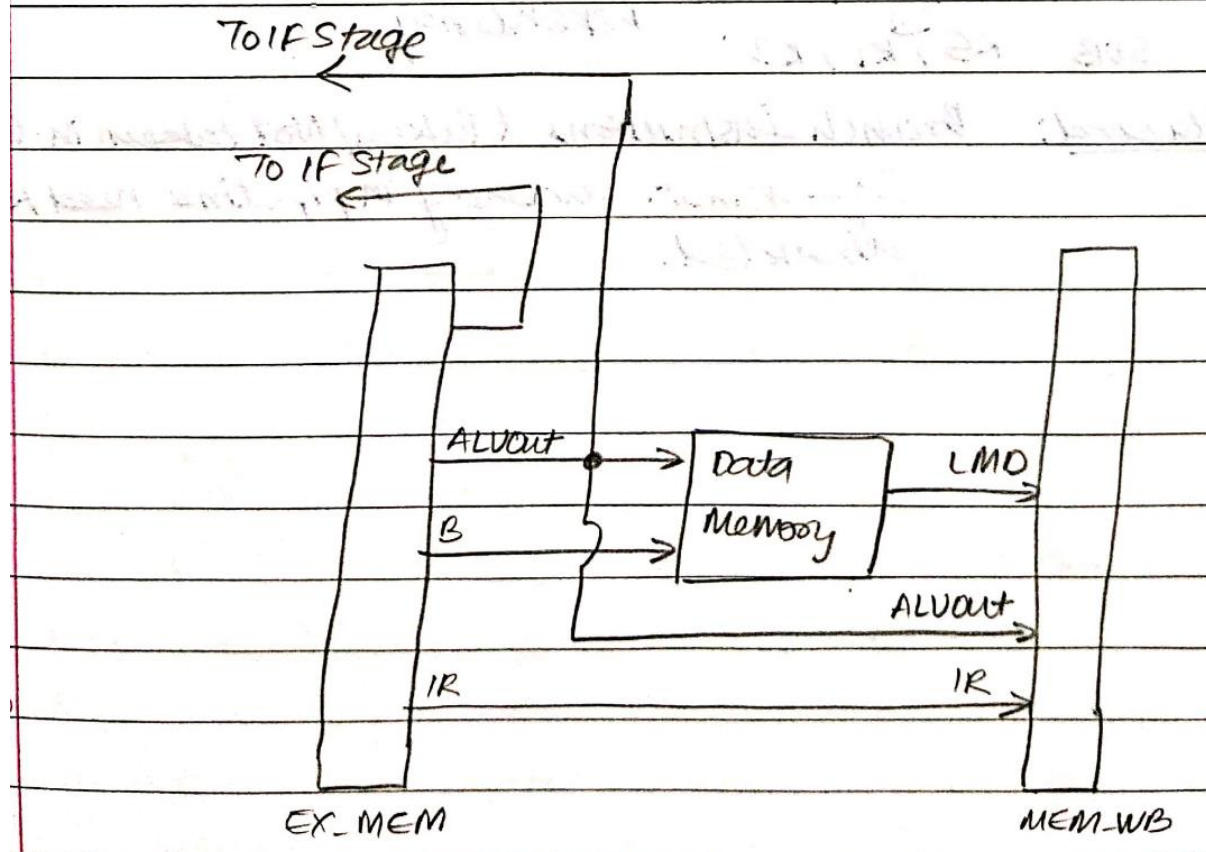 To IF Stage
To IF Stage
ALUOut
Data
LMD
B
Memory
ALUOut
IR
IR
EX_MEM
MEM_WB